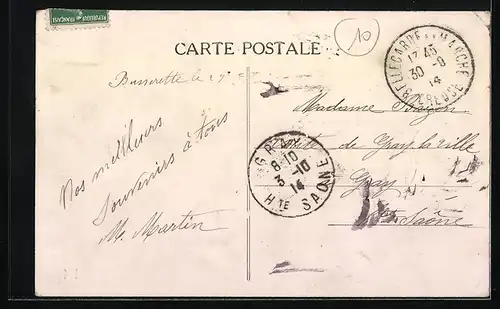 REPUBLIQUE FRANÇAISE
10
CARTE POSTALE
BELLEGARDE EN MARCHE
17 45
30 -9
14
CREUSE
le 29
Nos meilleurs
Souvenirs à tous
M. Martin
GRAY
8-10
3 -10
14
HTE SAONE
Madame
de Gray la ville
Gray
Hte Saône